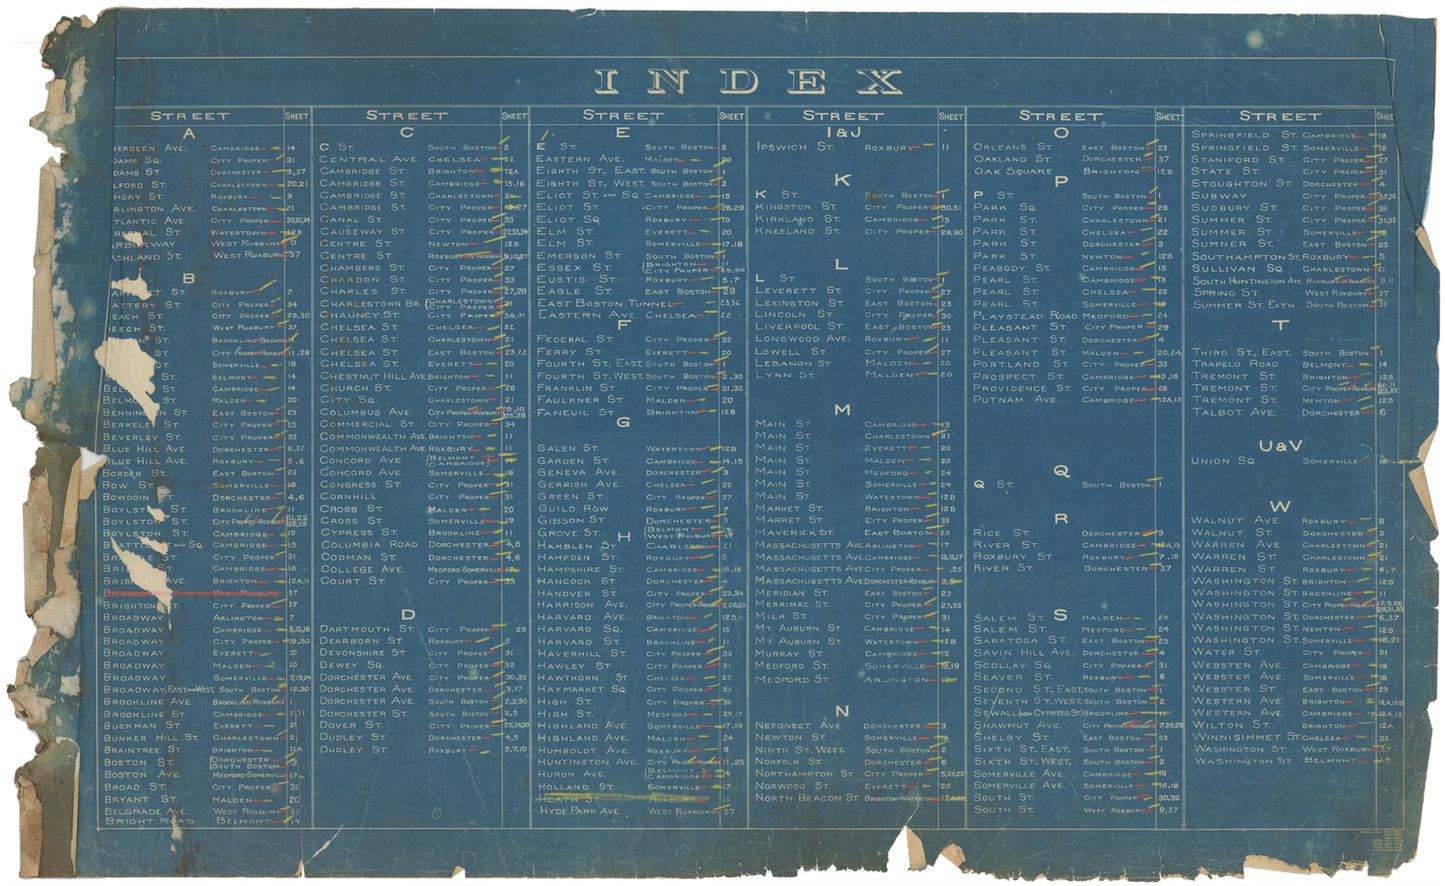 INDEX
STREET SHEET
A
BERDEEN AVE. CAMBRIDGE 14
DAMS SQ. CITY PROPER 31
DAMS ST. DORCHESTER 3,37
LFORD ST. CHARLESTOWN 20,21
MORY ST. ROXBURY 9
RLINGTON AVE. CHARLESTOWN 21
TLANTIC AVE. CITY PROPER
RSENAL ST. WATERTOWN 12B
ARBORWAY WEST ROXBURY 9
ASHLAND ST. WEST ROXBURY 37
B
ST. ROXBURY 7
ATTERY ST. CITY PROPER 34
EACH ST. CITY PROPER 29,30
EECH ST. WEST ROXBURY 37
ST. BROOKLINE
ST. CITY PROPER-ROXBURY 11,28
ST. SOMERVILLE 18
ST. BELMONT 14
BEL ST. CAMBRIDGE 14
BELMO ST. MALDEN 20
BENNING ST. EAST BOSTON 23
BERKELEY ST. CITY PROPER 25
BEVERLEY ST. CITY PROPER 33
BLUE HILL AVE. DORCHESTER 6,37
BLUE HILL AVE. ROXBURY 5,6
BORDER ST. EAST BOSTON 23
BOW ST. SOMERVILLE 18
BOWDOIN ST. DORCHESTER 4,6
BOYLSTON ST. BROOKLINE 11
BOYLSTON ST. CITY PROPER-ROXBURY
BOYLSTON ST. CAMBRIDGE 15
BRATTLE ST. AND SQ. CAMBRIDGE 15
ST. CITY PROPER 31
BRI ST. CAMBRIDGE 16
BRIGH AVE. BRIGHTON 12A,11
WEST ROXBURY 37
BRIGHTON ST. CITY PROPER 27
BROADWAY ARLINGTON 7
BROADWAY CAMBRIDGE
BROADWAY CITY PROPER 29,30
BROADWAY EVERETT 20
BROADWAY MALDEN 20
BROADWAY SOMERVILLE
BROADWAY, EAST AND WEST, SOUTH BOSTON
BROOKLINE AVE. BROOKLINE-ROXBURY
BROOKLINE ST. CAMBRIDGE
BUCKMAN ST. EVERETT 21
BUNKER HILL ST. CHARLESTOWN 21
BRAINTREE ST. BRIGHTON
BOSTON ST. DORCHESTER SOUTH BOSTON 3
BOSTON AVE. MEDFORD-SOMERVILLE 17
BROAD ST. CITY PROPER 32
BRYANT ST. MALDEN 20
BELGRADE AVE. WEST ROXBURY 37
BRIGHT ROAD BELMONT 14
STREET SHEET
C
C ST. SOUTH BOSTON 2
CENTRAL AVE. CHELSEA 22
CAMBRIDGE ST. BRIGHTON 12A
CAMBRIDGE ST. CAMBRIDGE 15,16
CAMBRIDGE ST. CHARLESTOWN
CAMBRIDGE ST. CITY PROPER
CANAL ST. CITY PROPER 33
CAUSEWAY ST. CITY PROPER 27,33,34
CENTRE ST. NEWTON 12B
CENTRE ST. ROXBURY-W.ROXBURY 9,10,37
CHAMBERS ST. CITY PROPER 27
CHARDON ST. CITY PROPER 33
CHARLES ST. CITY PROPER 27,28
CHARLESTOWN BR. CHARLESTOWN CITY PROPER 21
CHAUNCY ST. CITY PROPER 30,31
CHELSEA ST. CHELSEA 22
CHELSEA ST. CHARLESTOWN 21
CHELSEA ST. EAST BOSTON 23,22
CHELSEA ST. EVERETT 20
CHESTNUT HILL AVE. BRIGHTON 11
CHURCH ST. CITY PROPER 28
CITY SQ. CHARLESTOWN 21
COLUMBUS AVE. CITY PROPER-ROXBURY 9,10 25,28
COMMERCIAL ST. CITY PROPER 34
COMMONWEALTH AVE. BRIGHTON 11
COMMONWEALTH AVE. ROXBURY 11
CONCORD AVE. BELMONT CAMBRIDGE 14
CONCORD AVE. SOMERVILLE 18
CONGRESS ST. CITY PROPER 31
CORNHILL CITY PROPER 31
CROSS ST. MALDEN 20
CROSS ST. SOMERVILLE 19
CYPRESS ST. BROOKLINE 11
COLUMBIA ROAD DORCHESTER 4,6
CODMAN ST. DORCHESTER 4,6
COLLEGE AVE. MEDFORD-SOMERVILLE 17
COURT ST. CITY PROPER 33
D
DARTMOUTH ST. CITY PROPER 25
DEARBORN ST. ROXBURY 5
DEVONSHIRE ST. CITY PROPER 31
DEWEY SQ. CITY PROPER 32
DORCHESTER AVE. CITY PROPER 30,32
DORCHESTER AVE. DORCHESTER 3,37
DORCHESTER AVE. SOUTH BOSTON 2,3,30
DORCHESTER ST. SOUTH BOSTON 2,3
DOVER ST. CITY PROPER 25,26,30
DUDLEY ST. DORCHESTER 4,5
DUDLEY ST. ROXBURY 5,7,10
STREET SHEET
E
E ST. SOUTH BOSTON 2
EASTERN AVE. MALDEN 20
EIGHTH ST., EAST. SOUTH BOSTON 1
EIGHTH ST., WEST. SOUTH BOSTON 2
ELIOT ST. AND SQ. CAMBRIDGE 15
ELIOT ST. CITY PROPER 28,29
ELIOT SQ. ROXBURY 10
ELM ST. EVERETT 20
ELM ST. SOMERVILLE 17,18
EMERSON ST. SOUTH BOSTON 1
ESSEX ST. BRIGHTON CITY PROPER 11 29,30
EUSTIS ST. ROXBURY 5,7
EAGLE ST. EAST BOSTON 23
EAST BOSTON TUNNEL
EASTERN AVE. CHELSEA 22
F
FEDERAL ST. CITY PROPER 32
FERRY ST. EVERETT 20
FOURTH ST., EAST, SOUTH BOSTON 1
FOURTH ST., WEST, SOUTH BOSTON 2,30
FRANKLIN ST. CITY PROPER 31,32
FAULKNER ST. MALDEN 20
FANEUIL ST. BRIGHTON 12B
G
GALEN ST. WATERTOWN 12B
GARDEN ST. CAMBRIDGE 14,15
GENEVA AVE. DORCHESTER 3
GERRISH AVE. CHELSEA 22
GREEN ST. CITY PROPER 27
GUILD ROW ROXBURY 7
GIBSON ST. DORCHESTER 3
GROVE ST. BELMONT WEST ROXBURY 37
H
HAMBLEN ST. CHARLESTOWN 21
HAMPDEN ST. ROXBURY 5
HAMPSHIRE ST. CAMBRIDGE 16,18
HANCOCK ST. DORCHESTER 4
HANOVER ST. CITY PROPER 33,34
HARRISON AVE. CITY PROPER-ROXBURY
HARVARD AVE. BRIGHTON
HARVARD SQ. CAMBRIDGE 15
HARVARD ST. BROOKLINE 11
HAVERHILL ST. CITY PROPER 33
HAWLEY ST. CITY PROPER 31
HAWTHORN ST. CHELSEA 22
HAYMARKET SQ. CITY PROPER 33
HIGH ST. CITY PROPER 32
HIGH ST. MEDFORD 24,17
HIGHLAND AVE. SOMERVILLE 17,19
HIGHLAND AVE. MALDEN 24
HUMBOLDT AVE. ROXBURY 8
HUNTINGTON AVE. CITY PROPER-ROXBURY 11,25
HURON AVE. BELMONT CAMBRIDGE 14
HOLLAND ST. SOMERVILLE 17
HEATH ST. ROXBURY
HYDE PARK AVE. WEST ROXBURY 37
STREET SHEET
I & J
IPSWICH ST. ROXBURY 11
K
K ST. SOUTH BOSTON 1
KINGSTON ST. CITY PROPER 30,31
KIRKLAND ST. CAMBRIDGE 15
KNEELAND ST. CITY PROPER 29,30
L
L ST. SOUTH BOSTON 1
LEVERETT ST. CITY PROPER 27
LEXINGTON ST. EAST BOSTON 23
LINCOLN ST. CITY PROPER 30
LIVERPOOL ST. EAST BOSTON 23
LONGWOOD AVE. ROXBURY 11
LOWELL ST. CITY PROPER 27
LEBANON ST. MALDEN 20
LYNN ST. MALDEN 20
M
MAIN ST. CAMBRIDGE 13
MAIN ST. CHARLESTOWN 21
MAIN ST. EVERETT 20
MAIN ST. MALDEN 20
MAIN ST. MEDFORD 24
MAIN ST. SOMERVILLE 24
MAIN ST. WATERTOWN 12B
MARKET ST. BRIGHTON 12B
MARKET ST. CITY PROPER 33
MAVERICK ST. EAST BOSTON 23
MASSACHUSETTS AVE. ARLINGTON 17
MASSACHUSETTS AVE. CAMBRIDGE
MASSACHUSETTS AVE. CITY PROPER 25
MASSACHUSETTS AVE. DORCHESTER-ROXBURY 3,5
MERIDIAN ST. EAST BOSTON 23
MERRIMAC ST. CITY PROPER 27,33
MILK ST. CITY PROPER 31
MT. AUBURN ST. CAMBRIDGE 14
MT. AUBURN ST. WATERTOWN 12B
MURRAY ST. CAMBRIDGE 15
MEDFORD ST. SOMERVILLE 18,19
MEDFORD ST. ARLINGTON 17
N
NEPONSET AVE. DORCHESTER 3
NEWTON ST. SOMERVILLE
NINTH ST., WEST, SOUTH BOSTON 2
NORFOLK ST. DORCHESTER 6
NORTHAMPTON ST. CITY PROPER 5,26,25
NORWOOD ST. EVERETT 20
NORTH BEACON ST. BRIGHTON-WATERTOWN
STREET SHEET
O
ORLEANS ST. EAST BOSTON 23
OAKLAND ST. DORCHESTER 37
OAK SQUARE BRIGHTON 12B
P
P ST. SOUTH BOSTON 1
PARK SQ. CITY PROPER 28
PARK ST. CHARLESTOWN 21
PARK ST. CHELSEA 22
PARK ST. DORCHESTER 3
PARK ST. NEWTON 12B
PEABODY ST. CAMBRIDGE 15
PEARL ST. CAMBRIDGE 13
PEARL ST. CHELSEA 22
PEARL ST. SOMERVILLE 19
PLAYSTEAD ROAD MEDFORD 24
PLEASANT ST. CITY PROPER 29
PLEASANT ST. DORCHESTER 4
PLEASANT ST. MALDEN 20,24
PORTLAND ST. CITY PROPER 33
PROSPECT ST. CAMBRIDGE 13,16
PROVIDENCE ST. CITY PROPER 28
PUTNAM AVE. CAMBRIDGE 12A,13
Q
Q ST. SOUTH BOSTON 1
R
RICE ST. DORCHESTER 3
RIVER ST. CAMBRIDGE 12A,13
ROXBURY ST. ROXBURY 7,10
RIVER ST. DORCHESTER 37
S
SALEM ST. MALDEN 20
SALEM ST. MEDFORD 24
SARATOGA ST. EAST BOSTON 23
SAVIN HILL AVE. DORCHESTER 4
SCOLLAY SQ. CITY PROPER 31
SEAVER ST. ROXBURY 8
SECOND ST., EAST, SOUTH BOSTON 1
SEVENTH ST. WEST, SOUTH BOSTON 2
SEWALL NOW CYPRESS ST. BROOKLINE
SHAWMUT AVE. CITY PROPER-ROXBURY 7,26,29
SHELBY ST. EAST BOSTON 23
SIXTH ST., EAST, SOUTH BOSTON 1
SIXTH ST., WEST, SOUTH BOSTON 2
SOMERVILLE AVE. CAMBRIDGE 18
SOMERVILLE AVE. SOMERVILLE 16,18
SOUTH ST. CITY PROPER 30,32
SOUTH ST. WEST ROXBURY 9,37
STREET SHEE
SPRINGFIELD ST. CAMBRIDGE 18
SPRINGFIELD ST. SOMERVILLE 18
STANIFORD ST. CITY PROPER 27
STATE ST. CITY PROPER 31
STOUGHTON ST. DORCHESTER 4
SUBWAY CITY PROPER
SUDBURY ST. CITY PROPER 33
SUMMER ST. CITY PROPER 31,32
SUMMER ST. SOMERVILLE 18
SUMNER ST. EAST BOSTON 23
SOUTHAMPTON ST. ROXBURY 5
SULLIVAN SQ. CHARLESTOWN 21
SOUTH HUNTINGTON AVE. ROXBURY-W.ROXBURY 9,11
SPRING ST. WEST ROXBURY 37
SUMMER ST. EXT'N SOUTH BOSTON 32
T
THIRD ST., EAST. SOUTH BOSTON 1
TRAPELO ROAD BELMONT 14
TREMONT ST. BRIGHTON 12B
TREMONT ST. CITY PROPER-ROXBURY
TREMONT ST. NEWTON 12B
TALBOT AVE. DORCHESTER 6
U & V
UNION SQ. SOMERVILLE 18
W
WALNUT AVE. ROXBURY 8
WALNUT ST. DORCHESTER 3
WARREN AVE. CHARLESTOWN 21
WARREN ST. CHARLESTOWN 21
WARREN ST. ROXBURY 6,7
WASHINGTON ST. BRIGHTON 12B
WASHINGTON ST. BROOKLINE 11
WASHINGTON ST. CITY PROPER-ROXBURY
WASHINGTON ST. DORCHESTER 6,37
WASHINGTON ST. NEWTON 12B
WASHINGTON ST. SOMERVILLE 18,21
WATER ST. CITY PROPER 31
WEBSTER AVE. CAMBRIDGE 18
WEBSTER AVE. SOMERVILLE 18
WEBSTER ST. EAST BOSTON 23
WESTERN AVE. BRIGHTON
WESTERN AVE. CAMBRIDGE 12A,13
WILTON ST. BRIGHTON 12A
WINNISIMMET ST. CHELSEA 22
WASHINGTON ST. WEST ROXBURY 37
WASHINGTON ST. BELMONT 14